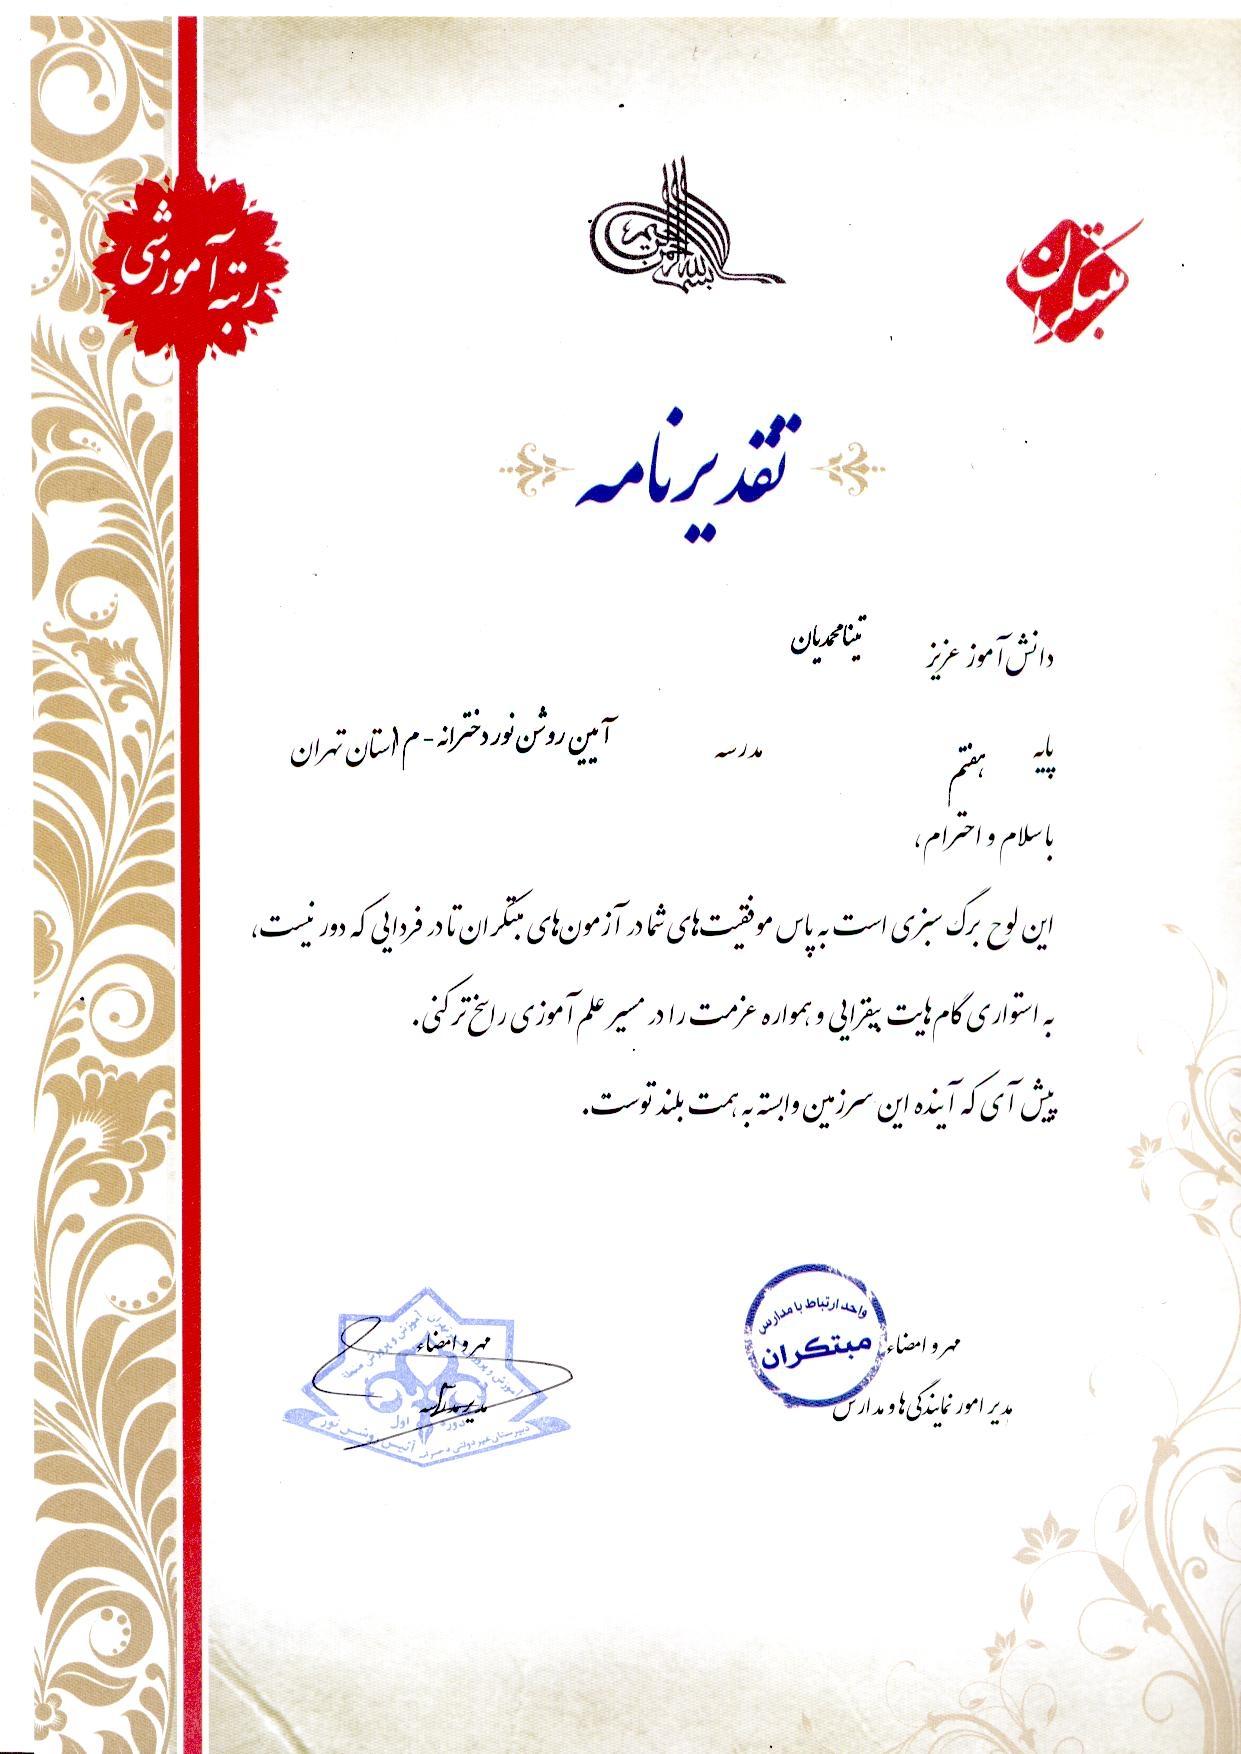 بسم الله الرحمن الرحیم
مبتکران
رتبه آموزشی
تقدیرنامه
دانش آموز عزیز تینا محمدیان
پایه هفتم مدرسه آیین روشن نور دخترانه - م۱ استان تهران
با سلام و احترام،
این لوح برگ سبزی است به پاس موفقیت‌های شما در آزمون‌های مبتکران تا در فردایی که دور نیست،
به استواری گام‌هایت بیفزایی و همواره عزمت را در مسیر علم آموزی راسخ‌تر کنی.
پیش آی که آینده این سرزمین وابسته به همت بلند توست.
واحد ارتباط با مدارس
مبتکران
مهر و امضاء
مدیر امور نمایندگی‌ها و مدارس
مهر و امضاء
مدیر مدرسه
دوره اول
دبیرستان غیر دولتی دخترانه آئین روشن نور